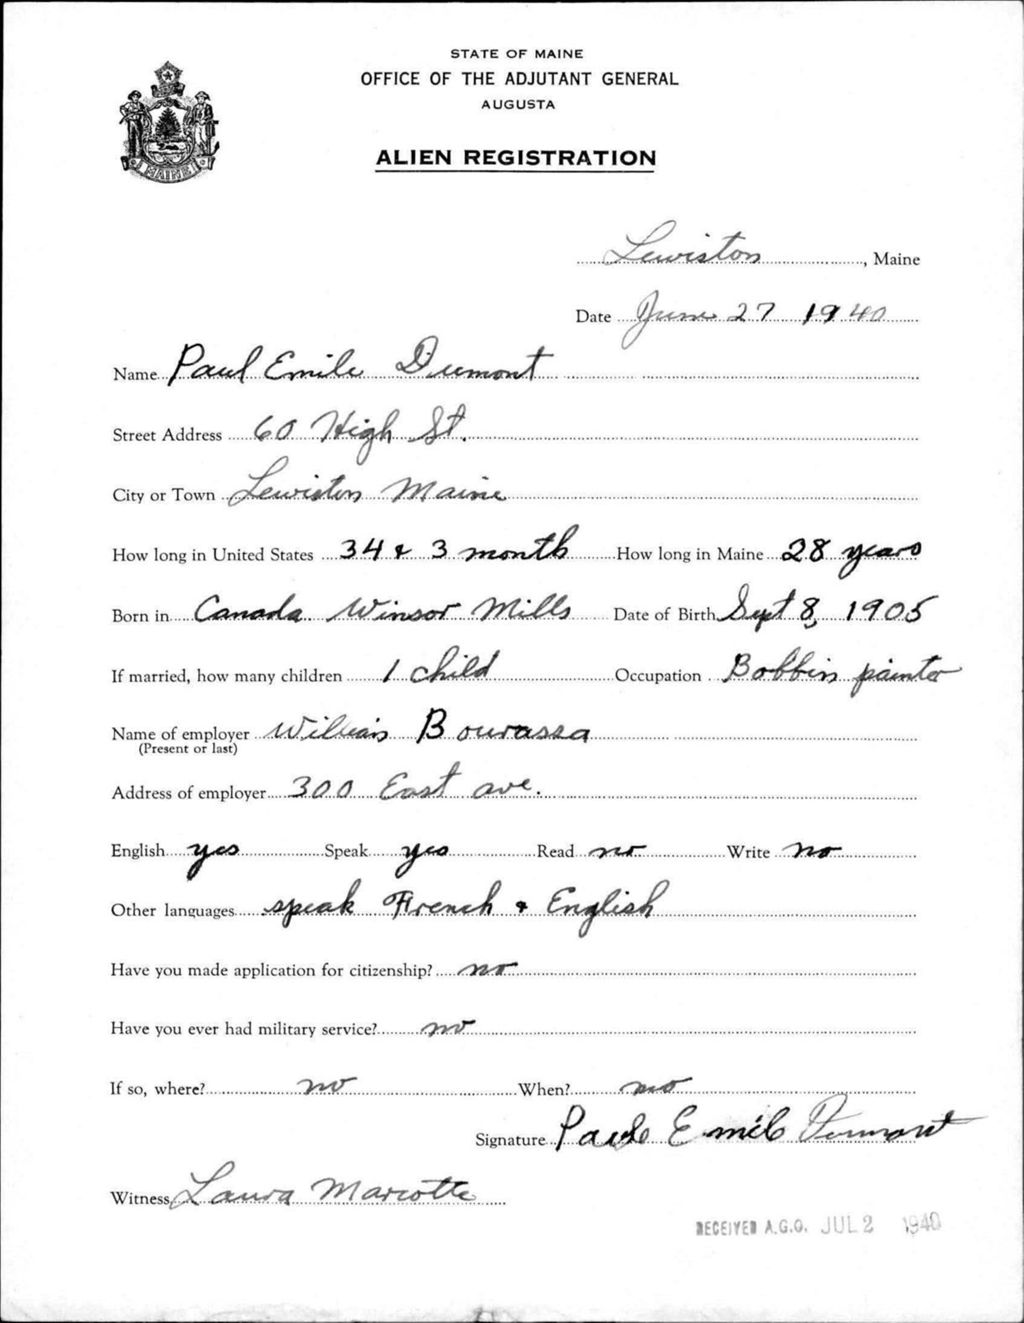 STATE OF MAINE
OFFICE OF THE ADJUTANT GENERAL
AUGUSTA
ALIEN REGISTRATION
MAINE
Lewiston, Maine
Date June 27 1940
Name Paul Emile Dumont
Street Address 60 High St.
City or Town Lewiston Maine
How long in United States 34 & 3 month How long in Maine 28 years
Born in Canada Winsor Mills Date of Birth Sept 8, 1905
If married, how many children 1 child Occupation Bobbin painter
Name of employer William Bourassa
(Present or last)
Address of employer 300 East ave.
English yes Speak yes Read no Write no
Other languages speak French & English
Have you made application for citizenship? no
Have you ever had military service? no
If so, where? no When? no
Signature Paul Emile Dumont
Witness Laura Marcotte
RECEIVED A.G.O. JUL 2 1940